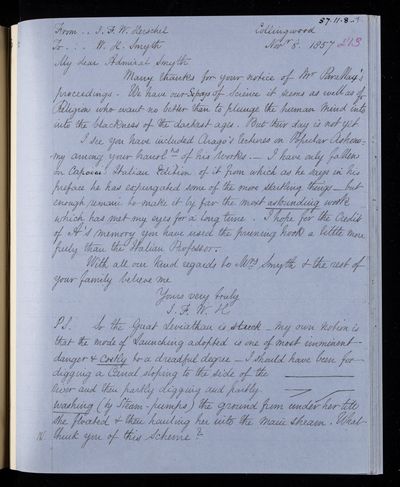 57-11-8-1
From .. J. F. W. Herschel Collingwood
To .:. W. H. Smyth Novr 8. 1857 213
My dear Admiral Smyth
Many thanks for your notice of Mr
proceedings. We have our Sepoys of Science it seems as well as of
Religion who want no better than to plunge the human mind into
into the blackness of the darkest ages. But their day is not yet
I see you have included Arago's Lectures on Popular Astrono-
my among your transln of his works. - I have only fallen
on Italian Edition of it from which as he says in his
preface he has expurgated some of the more startling things - but
enough remains to make it by far the most astounding work
which has met my eyes for a long time. I hope for the Credit
of A's memory you have used the pruning hook a little more
freely than the Italian Professor.
With all our kind regards to Mrs Smyth & the rest of
your family believe me
Yours very truly
J. F. W. H
P.S. So the Great Leviathan is stuck - my own notion is
that the mode of Launching adopted is one of most imminent
danger & costly to a dreadful degree - I should have been for
digging a Canal sloping to the side of the
River and then partly digging and partly
washing (by Steam-pumps) the ground from under her till
she floated & then hauling her into the main stream. What
think you of this Scheme?